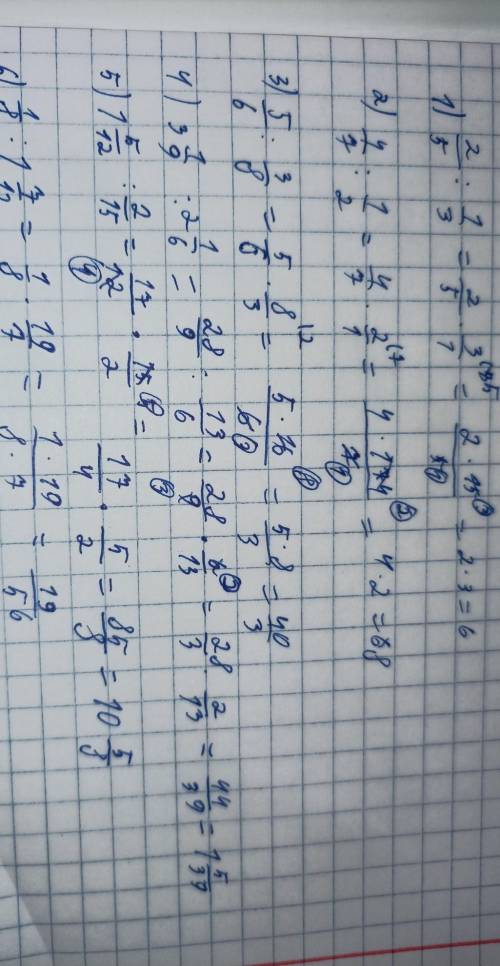 1) 2/5 : 1/3 = 2/5 · 3/1 = 2 · 15/5 = 2·3=6
2) 4/7 : 1/2 = 4/7 · 2/1 = 4 · 14/7 = 4·2=8
3) 5/6 : 3/8 = 5/6 · 8/3 = 5·16/6 = 5·8/3 = 40/3
4) 3 1/9 : 2 1/6 = 28/9 : 13/6 = 28/9 · 6/13 = 28/3 · 2/13 = 44/39 = 1 5/39
5) 1 5/12 : 2/15 = 17/12 · 15/2 =
17/4 · 5/2 = 85/8 = 10 5/8
6) 1/8 : 1 7/12 = 1/8 · 19/7 = 1·19/8·7 = 19/56